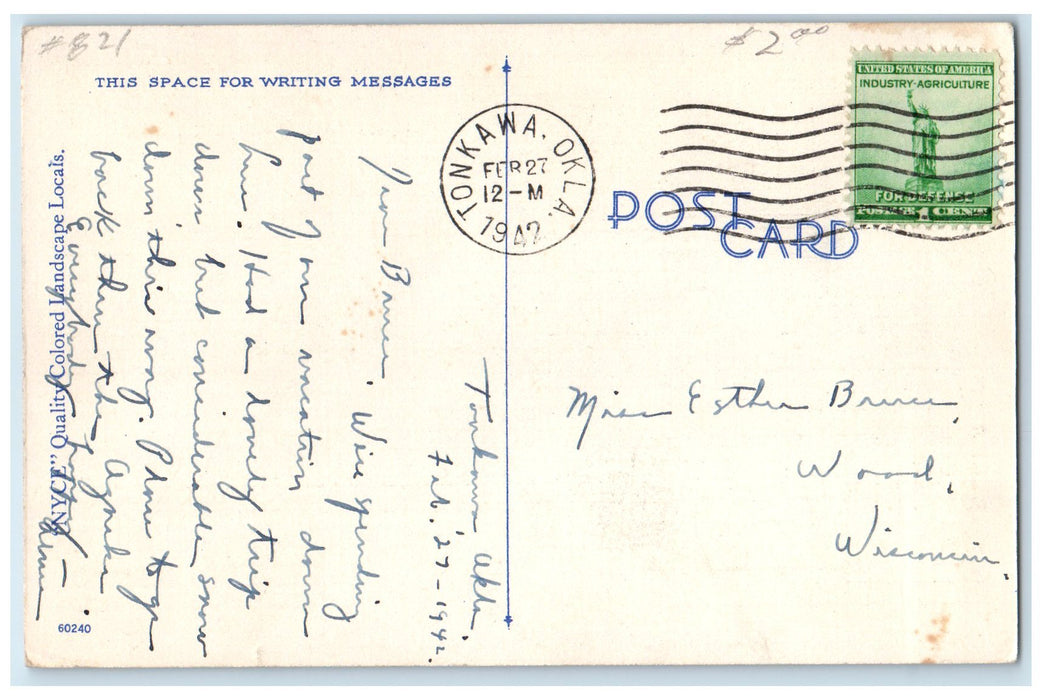 #821
$2.00
THIS SPACE FOR WRITING MESSAGES
TONKAWA, OKLA.
FEB 27
12-M
1942
UNITED STATES OF AMERICA
INDUSTRY-AGRICULTURE
FOR DEFENSE
POSTAGE 1 CENT
POST
CARD
Tonkawa Okla.
Feb. 27-1942.
Dear Bruce. We're spending
part of our vacation down
here. Had a lovely trip
down but considerable snow
down this way. Plan to go
back thru the
Everybody
Miss Esther Bruce,
Wood,
Wisconsin.
"NYCE" Quality Colored Landscape Locals.
60240